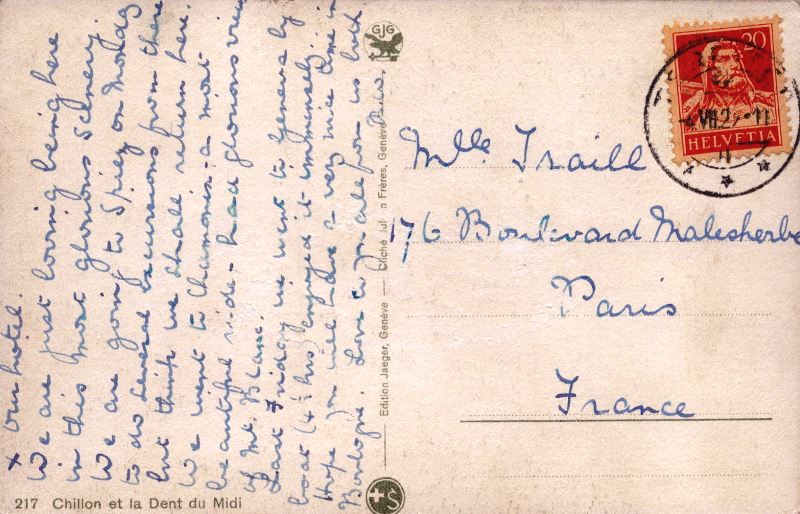 x our hotel.
We are just loving being here
in this most glorious scenery
We are going to Spiez on Monday
to do several excursions from there
but think we shall return here.
We went to Chamonix - a most
beautiful ride - had glorious view
of Mt. Blanc.
Last Friday we went to Geneva by
boat (4½ hrs) enjoyed it immensely
Hope you will have a very nice time in
Boulogne. Love to you all from us both
GJG
Mlle Traill
176 Boulevard Malesherbes
Paris
France
20
HELVETIA
VII.2
11
Edition Jaeger, Genève — Cliché Jullien Frères, Genève
S
217 Chillon et la Dent du Midi